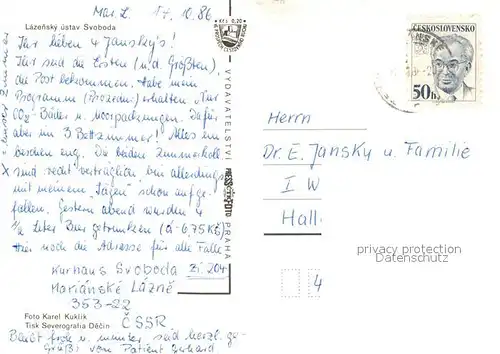 Mar. L. 17.10.86
Lázeňský ústav Svoboda
Ihr lieben 4 Jansky's!
Ihr sind die Ersten (u.d. Größten),
die Post bekommen. Habe mein
Programm (Prozedur) erhalten. Nur
CO₂-Bäder u. Moorpackungen. Dafür
aber im 3 Bettzimmer! Alles ein
bischen eng. Die beiden Zimmerkoll.
sind recht verträglich, bin allerdings
mit meinem "Sägen" schon aufge-
fallen. Gestern abend wurden 4
½ Liter Bier getrunken (á-6,75 Kčs)
Hier noch die Adresse für alle Fälle
Kurhaus Svoboda Zi. 204
Mariánské Lázně
353-22
ČSSR
Foto Karel Kuklík
Tisk Severografia Děčín
Bleibt froh u. munter, seid herzl. ge-
grüßt vom Patient Gerhard
X = unser Zimmer
Kčs 0,20
VYDAVATELSTVÍ
PRESSFOTO
PRAHA
ČESKOSLOVENSKO
50h
Herrn
Dr. E. Jansky u. Familie
I W
Hall
4
privacy protection
Datenschutz